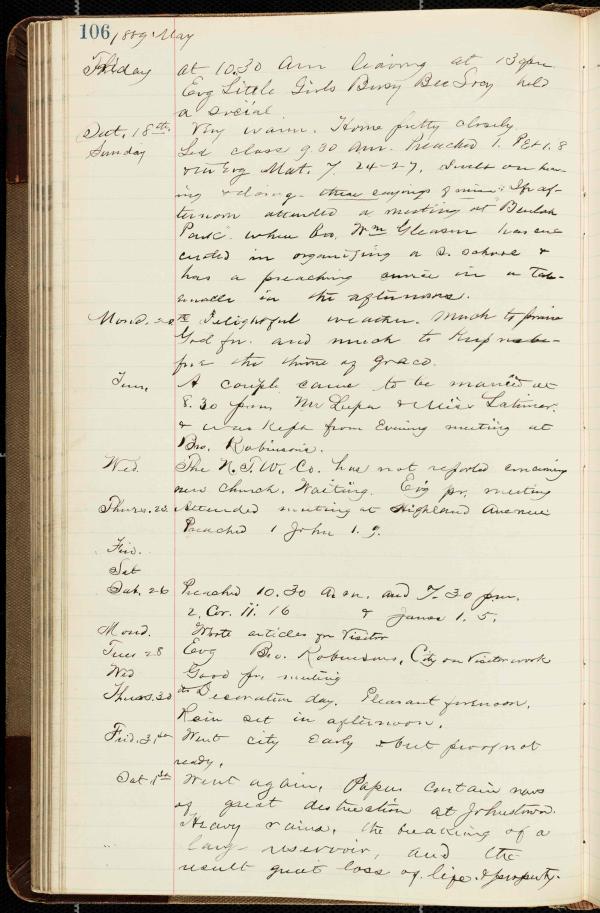 106 1889 May
Friday at 10.30 am leaving at 13 pm
Evg Little Girls Busy Bee Socy held
a social
Sat. 18th Very warm. Home pretty closely
Sunday Led class 9.30 am. Preached 1. Pet 1.8
& in Evg Mat. 7. 24-27. Dwelt on hear-
ing & doing - these sayings of mine. In af-
ternoon attended a meeting at "Beulah
Park" where Bro. Wm Gleason has suc-
ceeded in organizing a S. school &
has a preaching service in a Tab-
ernacle in the afternoons.
Mond. 20th Delightful weather. Much to praise
God for. and much to keep us be-
fore the throne of grace.
Tues. A couple came to be married at
8.30 from Mr Leeper & Miss Latimer.
& was kept from Evening meeting at
Bro. Robinsons.
Wed. The Co. has not reported concerning
new church. Waiting. Evg pr. meeting
Thurs. 23. Attended meeting at Highland Avenue
Preached 1 John 1. 9.
Frid.
Sat
Sab. 26 Preached 10.30 a.m. and 7.30 pm.
2. Cor. 11. 16 & James 1. 5.
Mond. Wrote articles for Visitor
Tues 28 Evg Bro. Robinsons, City on Visitor work
Wed Good pr. meeting
Thurs. 30th Decoration day. Pleasant forenoon.
Rain set in afternoon.
Frid. 31st Went city early & but proof not
ready.
Sat 1st Went again. Papers contain news
of great destruction at Johnstown.
Heavy rains, the breaking of a
large reservoir, and the
result great loss of life & property.